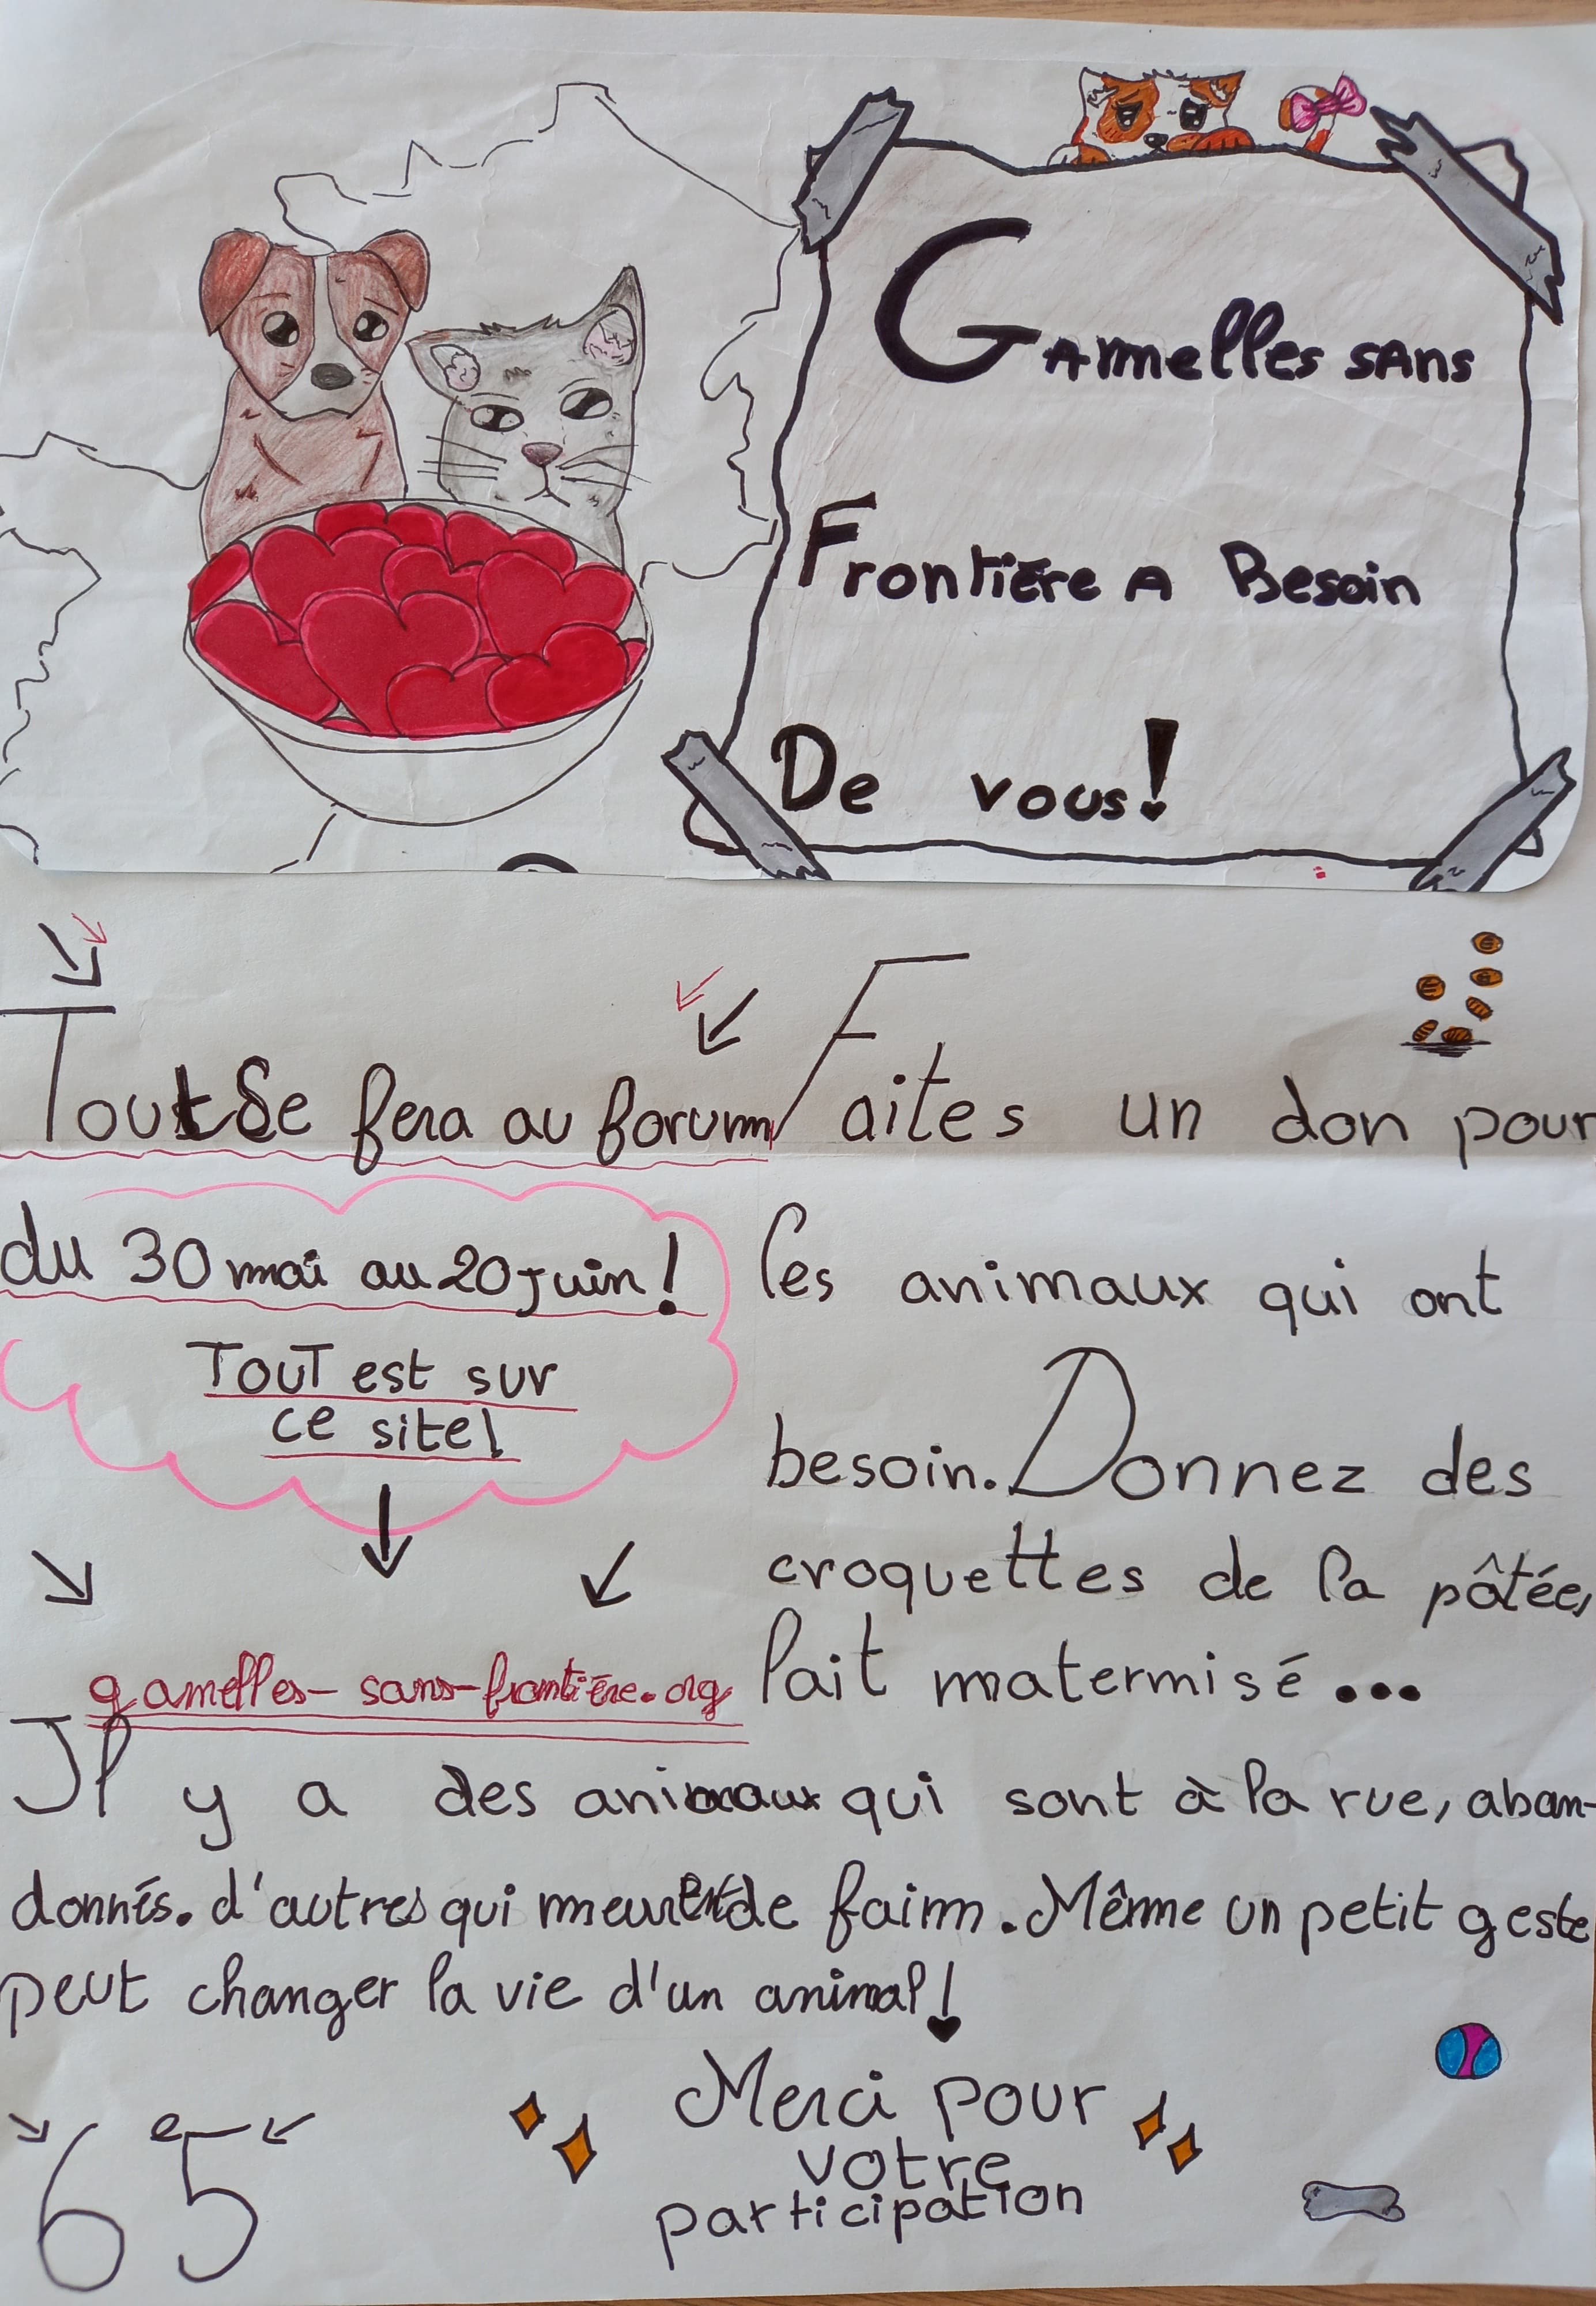 Gamelles sans
Frontière A Besoin
De vous!
Tout Se fera au forum
du 30 mai au 20 juin!
TOUT est sur
ce site!
gamelles-sans-frontière.org
Faites un don pour
les animaux qui ont
besoin. Donnez des
croquettes de la pâtée,
lait maternisé...
Il y a des animaux qui sont à la rue, aban-
donnés. d'autres qui meurent de faim. Même un petit geste
peut changer la vie d'un animal!
Merci pour
votre
participation
6e5